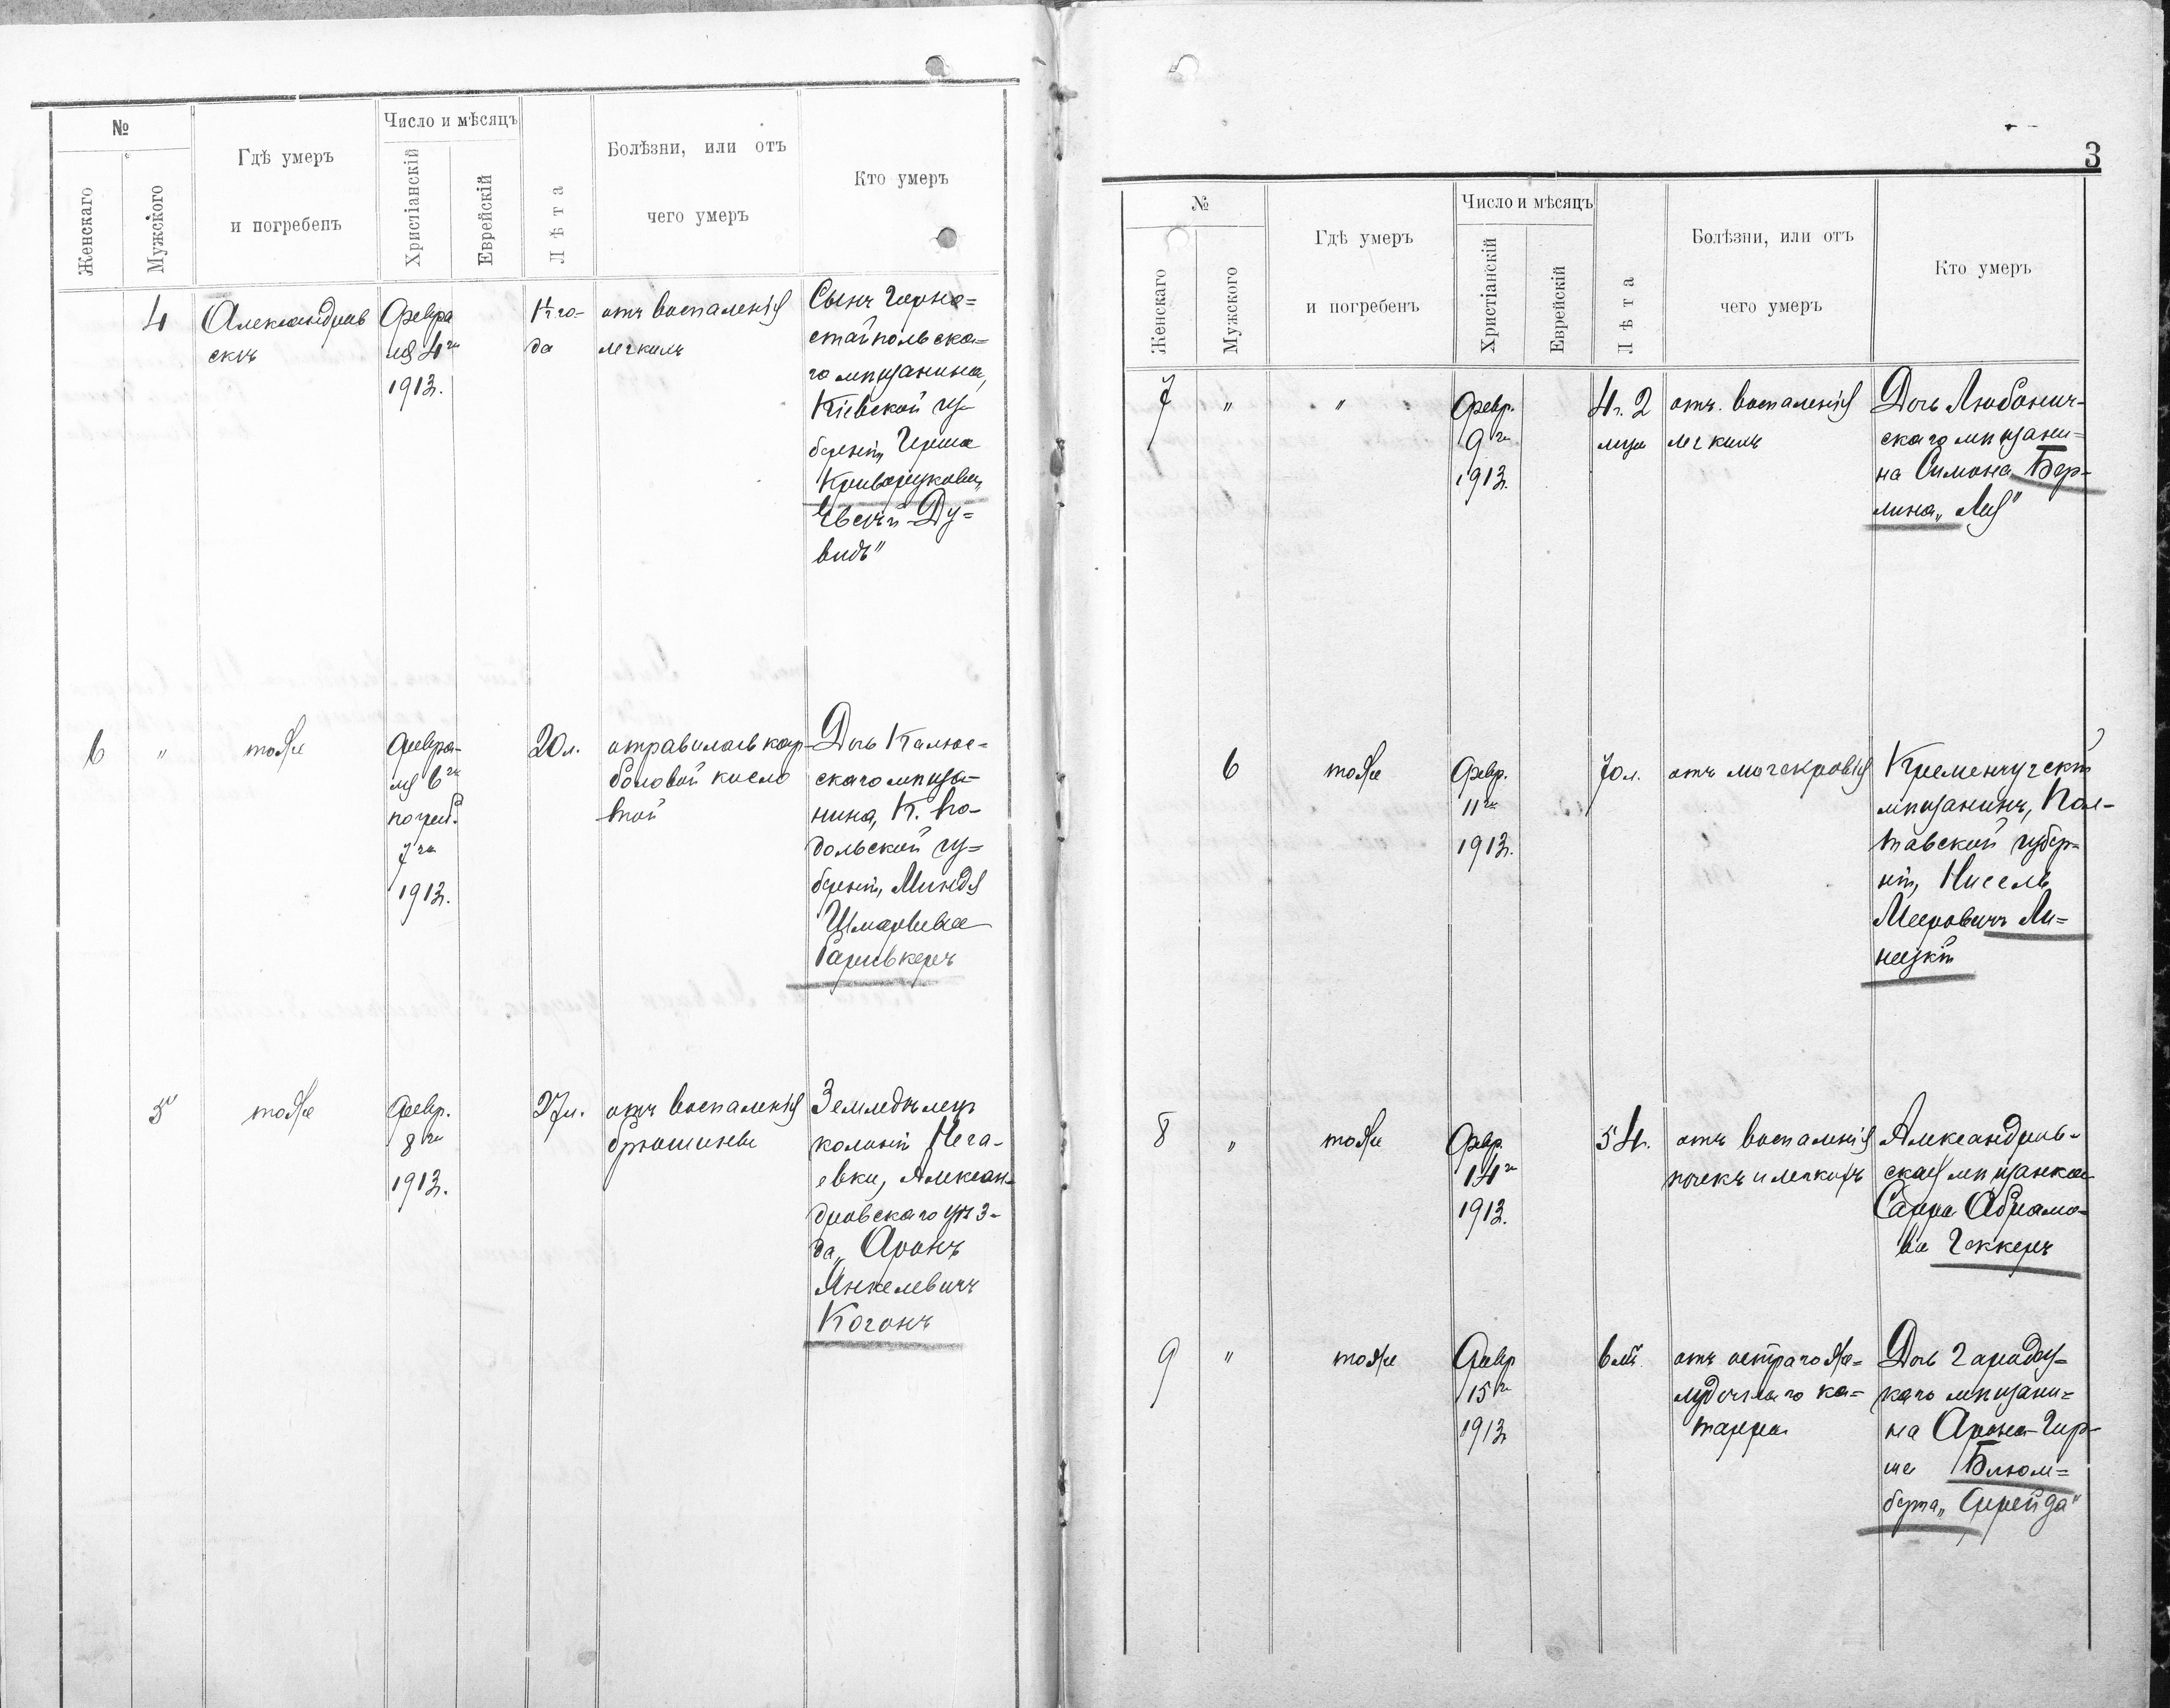 №
Женскаго
Мужскаго
Гдѣ умеръ
и погребенъ
Число и мѣсяцъ
Христіанскій
Еврейскій
Лѣта
Болѣзни, или отъ
чего умеръ
Кто умеръ
4
Александров
скѣ
Февра
ля 4го
1913.
1½ го-
да
отъ воспаленія
легкихъ
Сынъ Черно-
стайпольска-
го мѣщанина,
Кіевской гу-
берніи, Герша
Криворукова,
Евсѣй-Ду-
видъ"
6
"
тоже
Февра-
ля 6го
погреб.
7го
1913.
20 л.
отравилась кар-
боловой кисло
той
Дочь Калюс-
скаго мѣща-
нина, К. По-
дольской гу-
берніи, Миндя
Шмарiева
Гаривкеръ
5
тоже
Февр.
8го
1913.
27 л.
отъ воспаленія
брюшины
Земледѣлецъ
колоніи Неча-
евки, Алексан-
дровскаго уѣз-
да, Аронъ
Янкелевичъ
Когонъ
3
№
Женскаго
Мужского
Гдѣ умеръ
и погребенъ
Число и мѣсяцъ
Христіанскій
Еврейскій
Лѣта
Болѣзни, или отъ
чего умеръ
Кто умеръ
7
"
"
Февр.
9го
1913.
4 г. 2
мца
отъ воспаленія
легкихъ
Дочь Любонич-
скаго мѣщани-
на Симона Бер-
лина „Лея"
6
тоже
Февр.
11го
1913.
70 л.
отъ мочекровія
Кременчугскій
мѣщанинъ, Пол-
тавской губер-
ніи, Нисель
Мееровичъ Ли-
нецкій
8
"
тоже
Февр.
14го
1913.
54.
отъ воспаленія
почекъ и легкихъ
Александров-
ская мѣщанка
Сарра Абрамо-
ва Геккеръ
9
"
тоже
Февр
15го
1913
6 лѣтъ
отъ остраго же-
лудочнаго ка-
тарра
Дочь Городоу-
каго мѣщани-
на Арона-Гир-
ша Блюм-
берга „Сирейда"